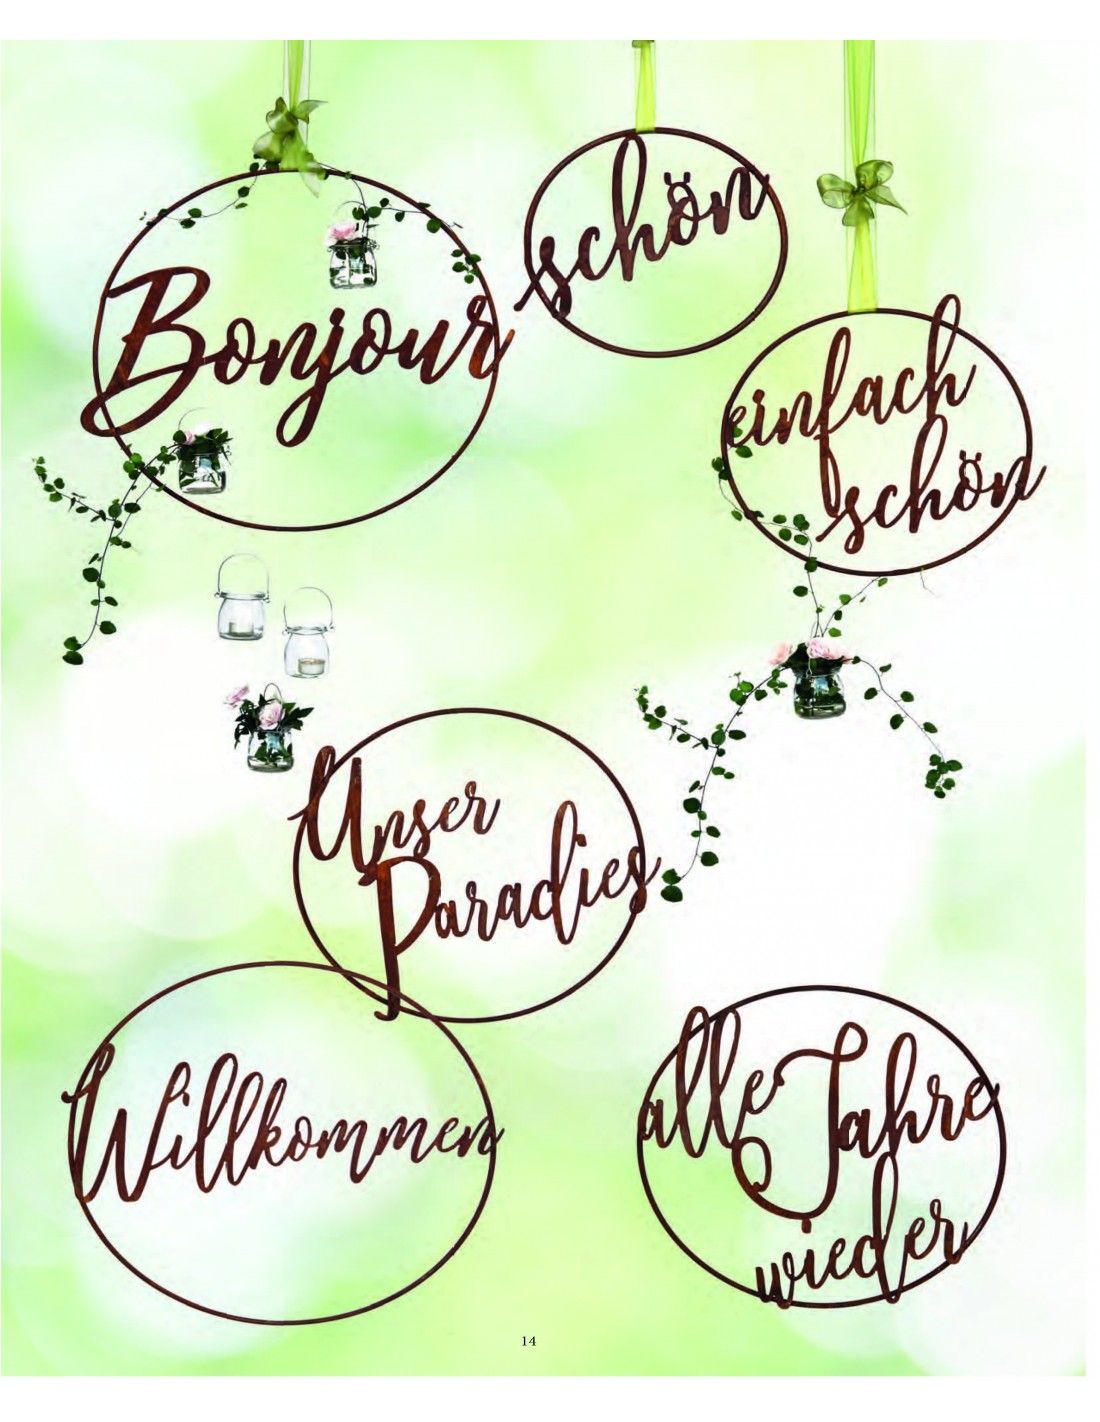 Bonjour
schön
einfach
schön
Unser
Paradies
Willkommen
alle Jahre
wieder
14